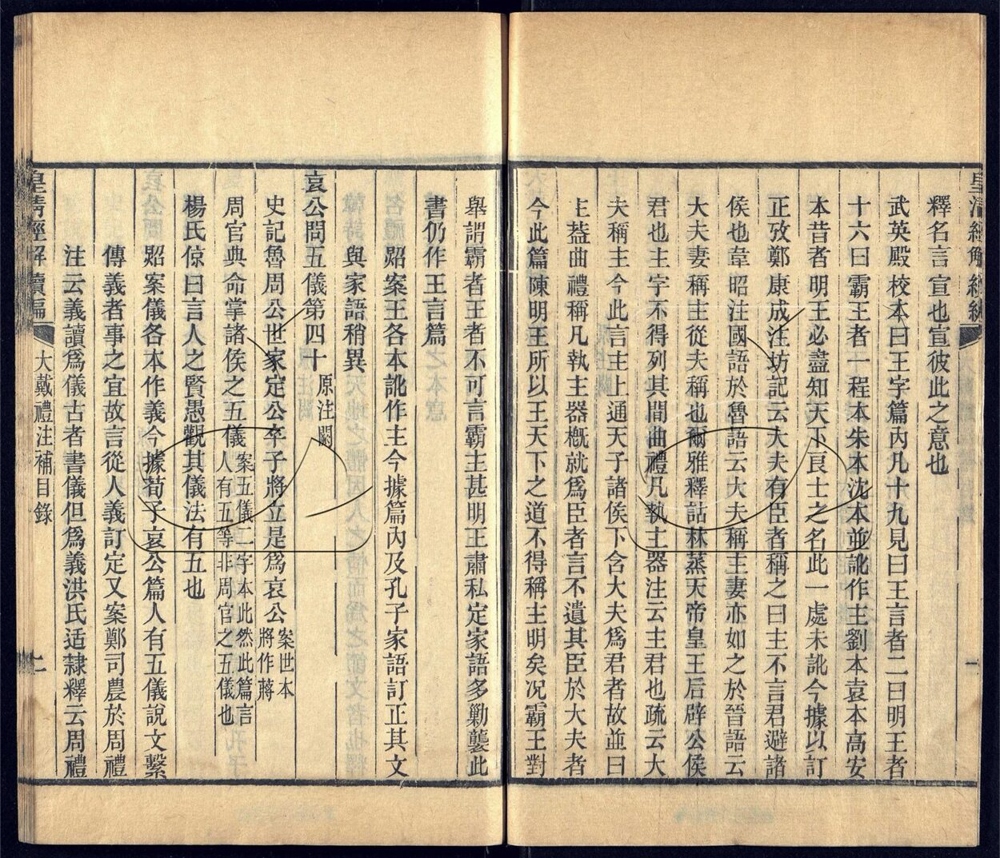 皇清經解續編
釋名言宣也宣彼此之意也
武英殿校本曰王字篇內凡十九見曰王言者二曰明王者
十六曰霸王者一程本朱本沈本並訛作主劉本袁本高安
本昔者明王必盡知天下良士之名此一處未訛今據以訂
正攷鄭康成注坊記云大夫有臣者稱之曰主不言君避諸
侯也韋昭注國語於魯語云大夫稱主妻亦如之於晉語云
大夫妻稱主從夫稱也爾雅釋詁林蒸天帝皇王后辟公侯
君也主字不得列其間曲禮凡執主器注云主君也疏云大
夫稱主今此言主上通天子諸侯下含大夫為君者故並曰
主葢曲禮稱凡執主器概就為臣者言不遺其臣於大夫者
今此篇陳明王所以王天下之道不得稱主明矣況霸王對
舉謂霸者王者不可言霸主甚明王肅私定家語多勦襲此
書仍作王言篇
照案王各本訛作主今據篇內及孔子家語訂正其文
與家語稍異
哀公問五儀第四十原注闕
史記魯周公世家定公卒子將立是為哀公案世本將作蔣
周官典命掌諸侯之五儀案五儀二字本此然此篇言人有五等非周官之五儀也
楊氏倞曰言人之賢愚觀其儀法有五也
照案儀各本作義今據荀子哀公篇人有五儀說文繫
傳義者事之宜故言從人義訂定又案鄭司農於周禮
注云義讀為儀古者書儀但為義洪氏适隸釋云周禮
皇清經解續編
大戴禮注補目錄